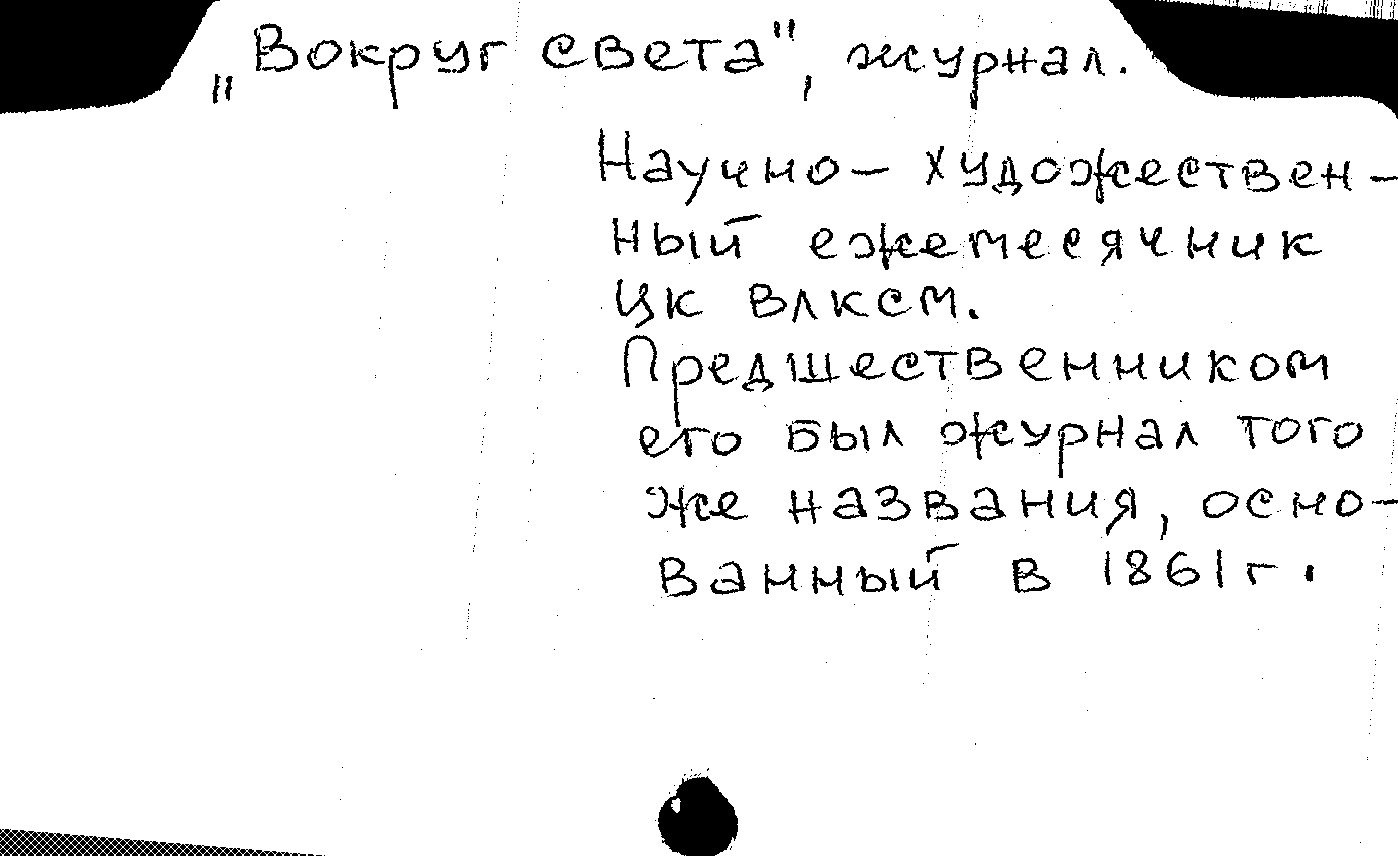 „Вокруг света", журнал.
Научно-художествен-
ный ежемесячник
ЦК ВЛКСМ.
Предшественником
его был журнал того
же названия, осно-
ванный в 1861г.